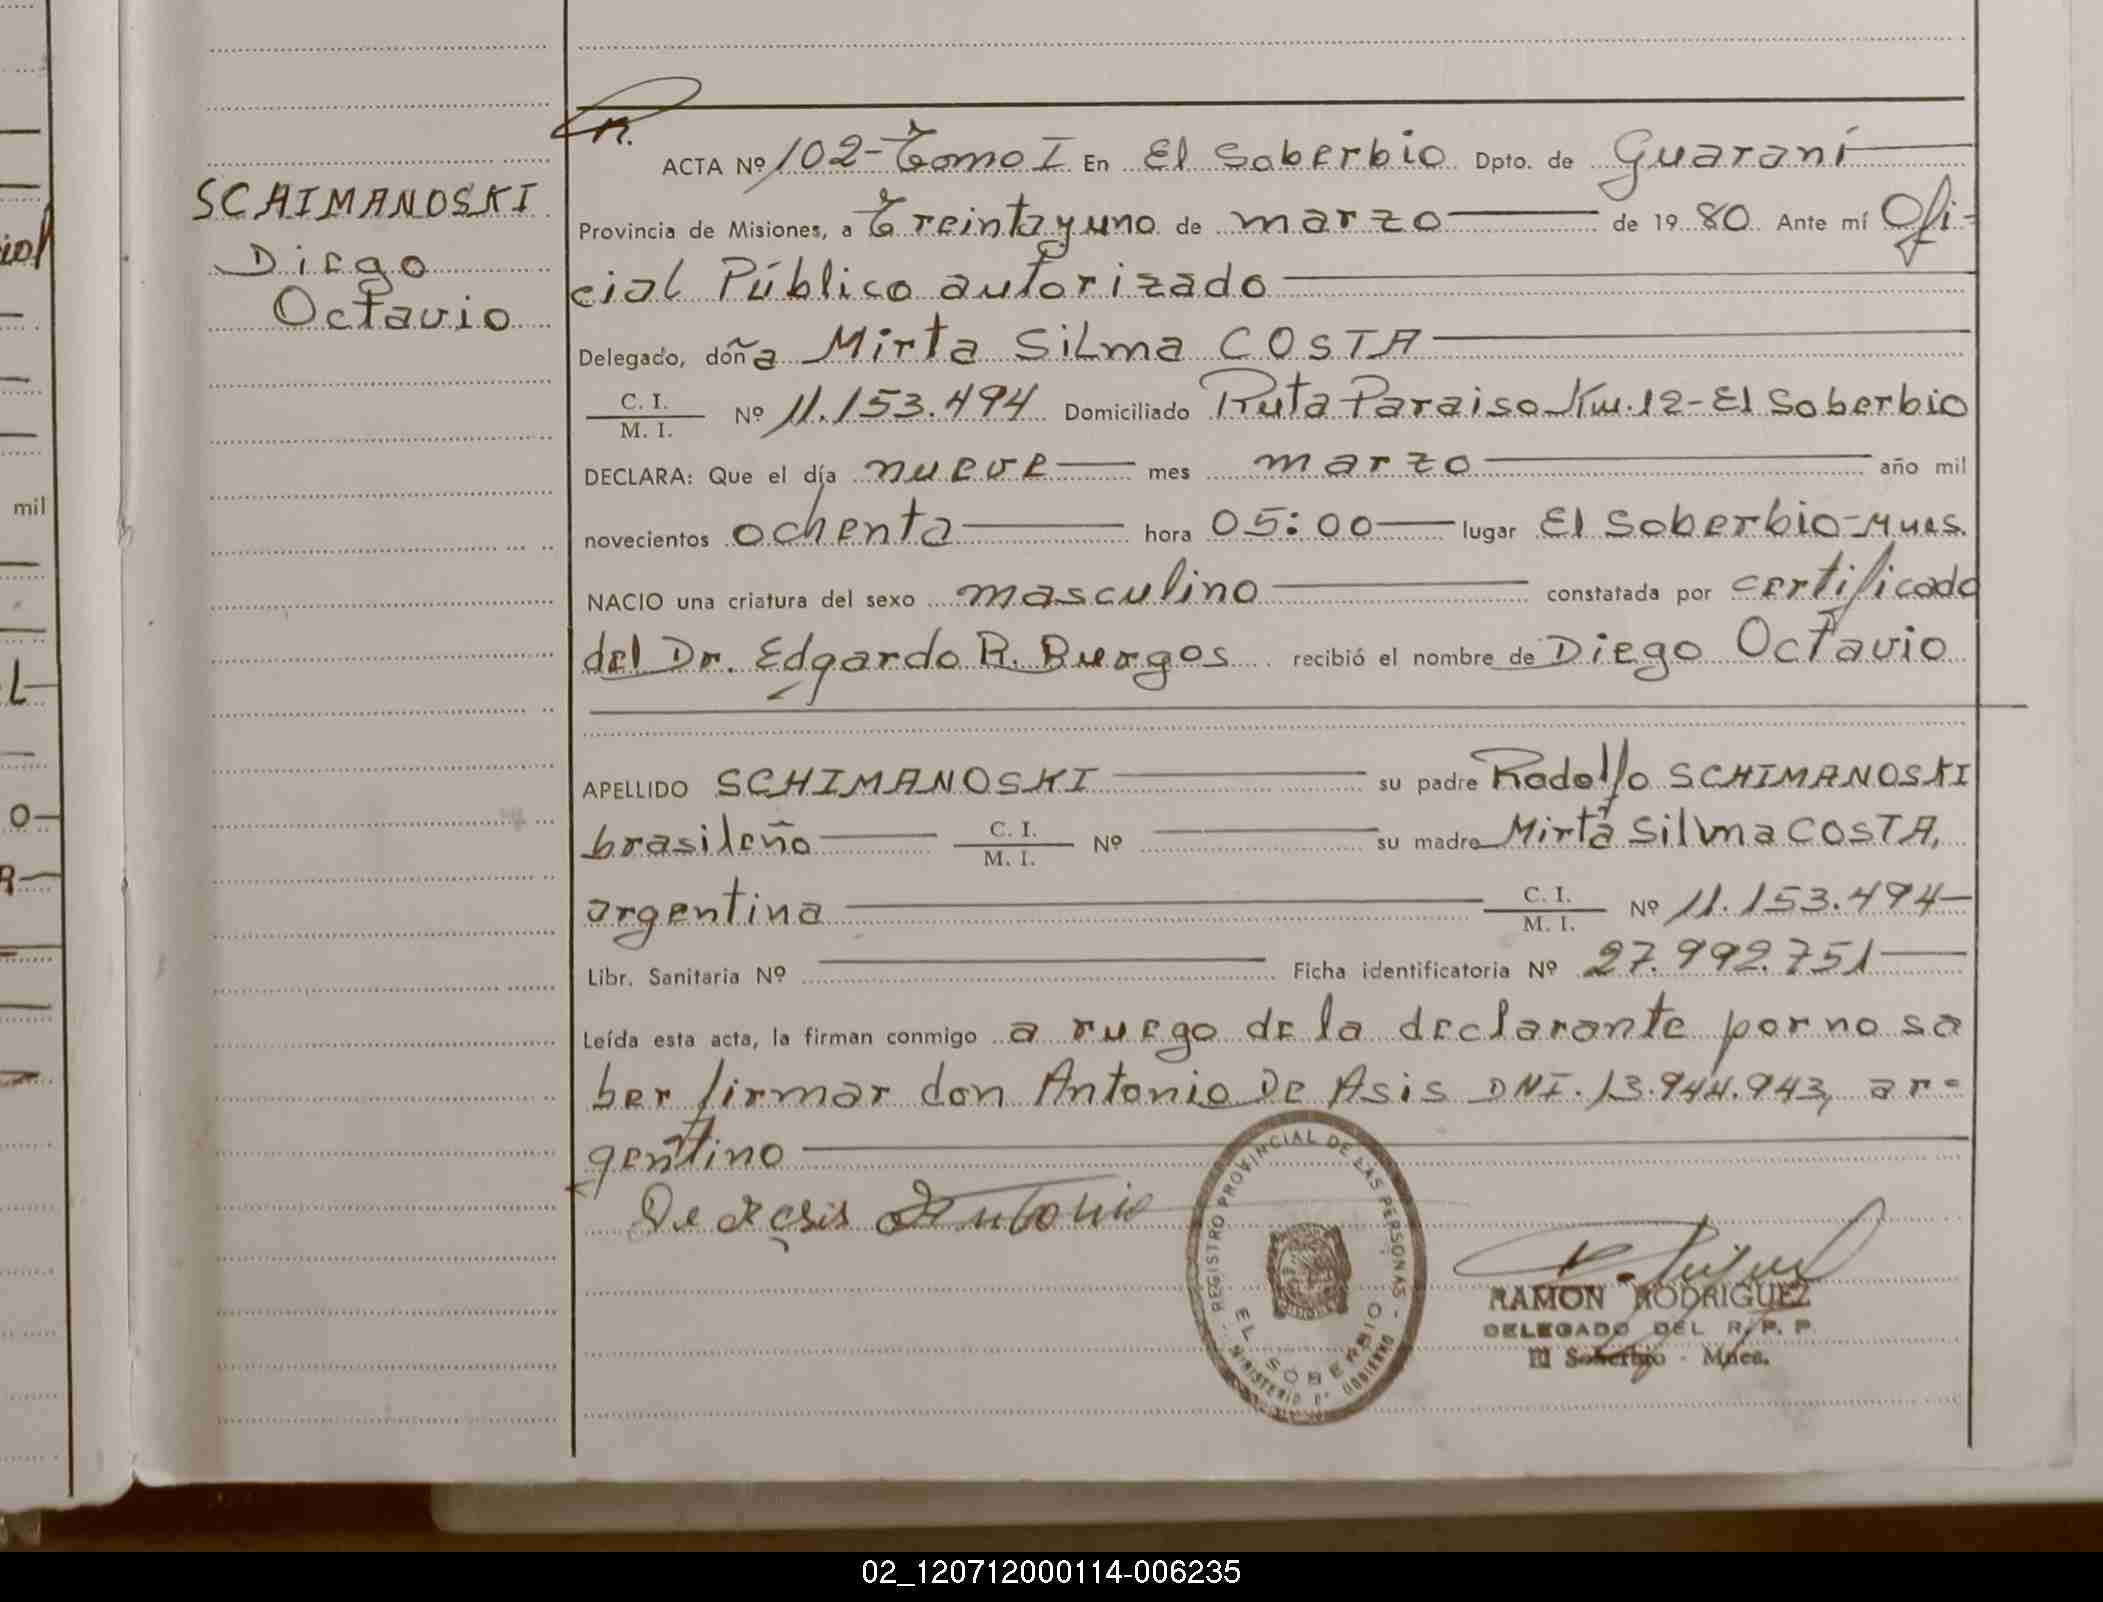 SCHIMANOSKI
Diego
Octavio
ACTA Nº 102-Tomo I En El Soberbio Dpto. de Guaraní
Provincia de Misiones, a Treinta y uno de marzo de 1980 Ante mí Ofi-
cial Público autorizado
Delegado, doña Mirta Silma COSTA
C. I. / M. I. Nº 11.153.494 Domiciliado Ruta Paraiso Km. 12-El Soberbio
DECLARA: Que el día nueve mes marzo año mil
novecientos ochenta hora 05:00 lugar El Soberbio-Mnes.
NACIO una criatura del sexo masculino constatada por certificado
del Dr. Edgardo R. Burgos recibió el nombre de Diego Octavio
APELLIDO SCHIMANOSKI su padre Rodolfo SCHIMANOSKI
brasileño C. I. / M. I. Nº su madre Mirta Silma COSTA,
argentina C. I. / M. I. Nº 11.153.494
Libr. Sanitaria Nº Ficha identificatoria Nº 27.992.751
Leída esta acta, la firman conmigo a ruego de la declarante por no sa
ber firmar don Antonio De Asis DNI. 13.944.943, ar-
gentino
De Asis Antonio
REGISTRO PROVINCIAL DE LAS PERSONAS
EL SOBERBIO
MINISTERIO DE GOBIERNO
RAMON RODRIGUEZ
DELEGADO DEL R. P. P.
El Soberbio - Mnes.
mil
02_120712000114-006235